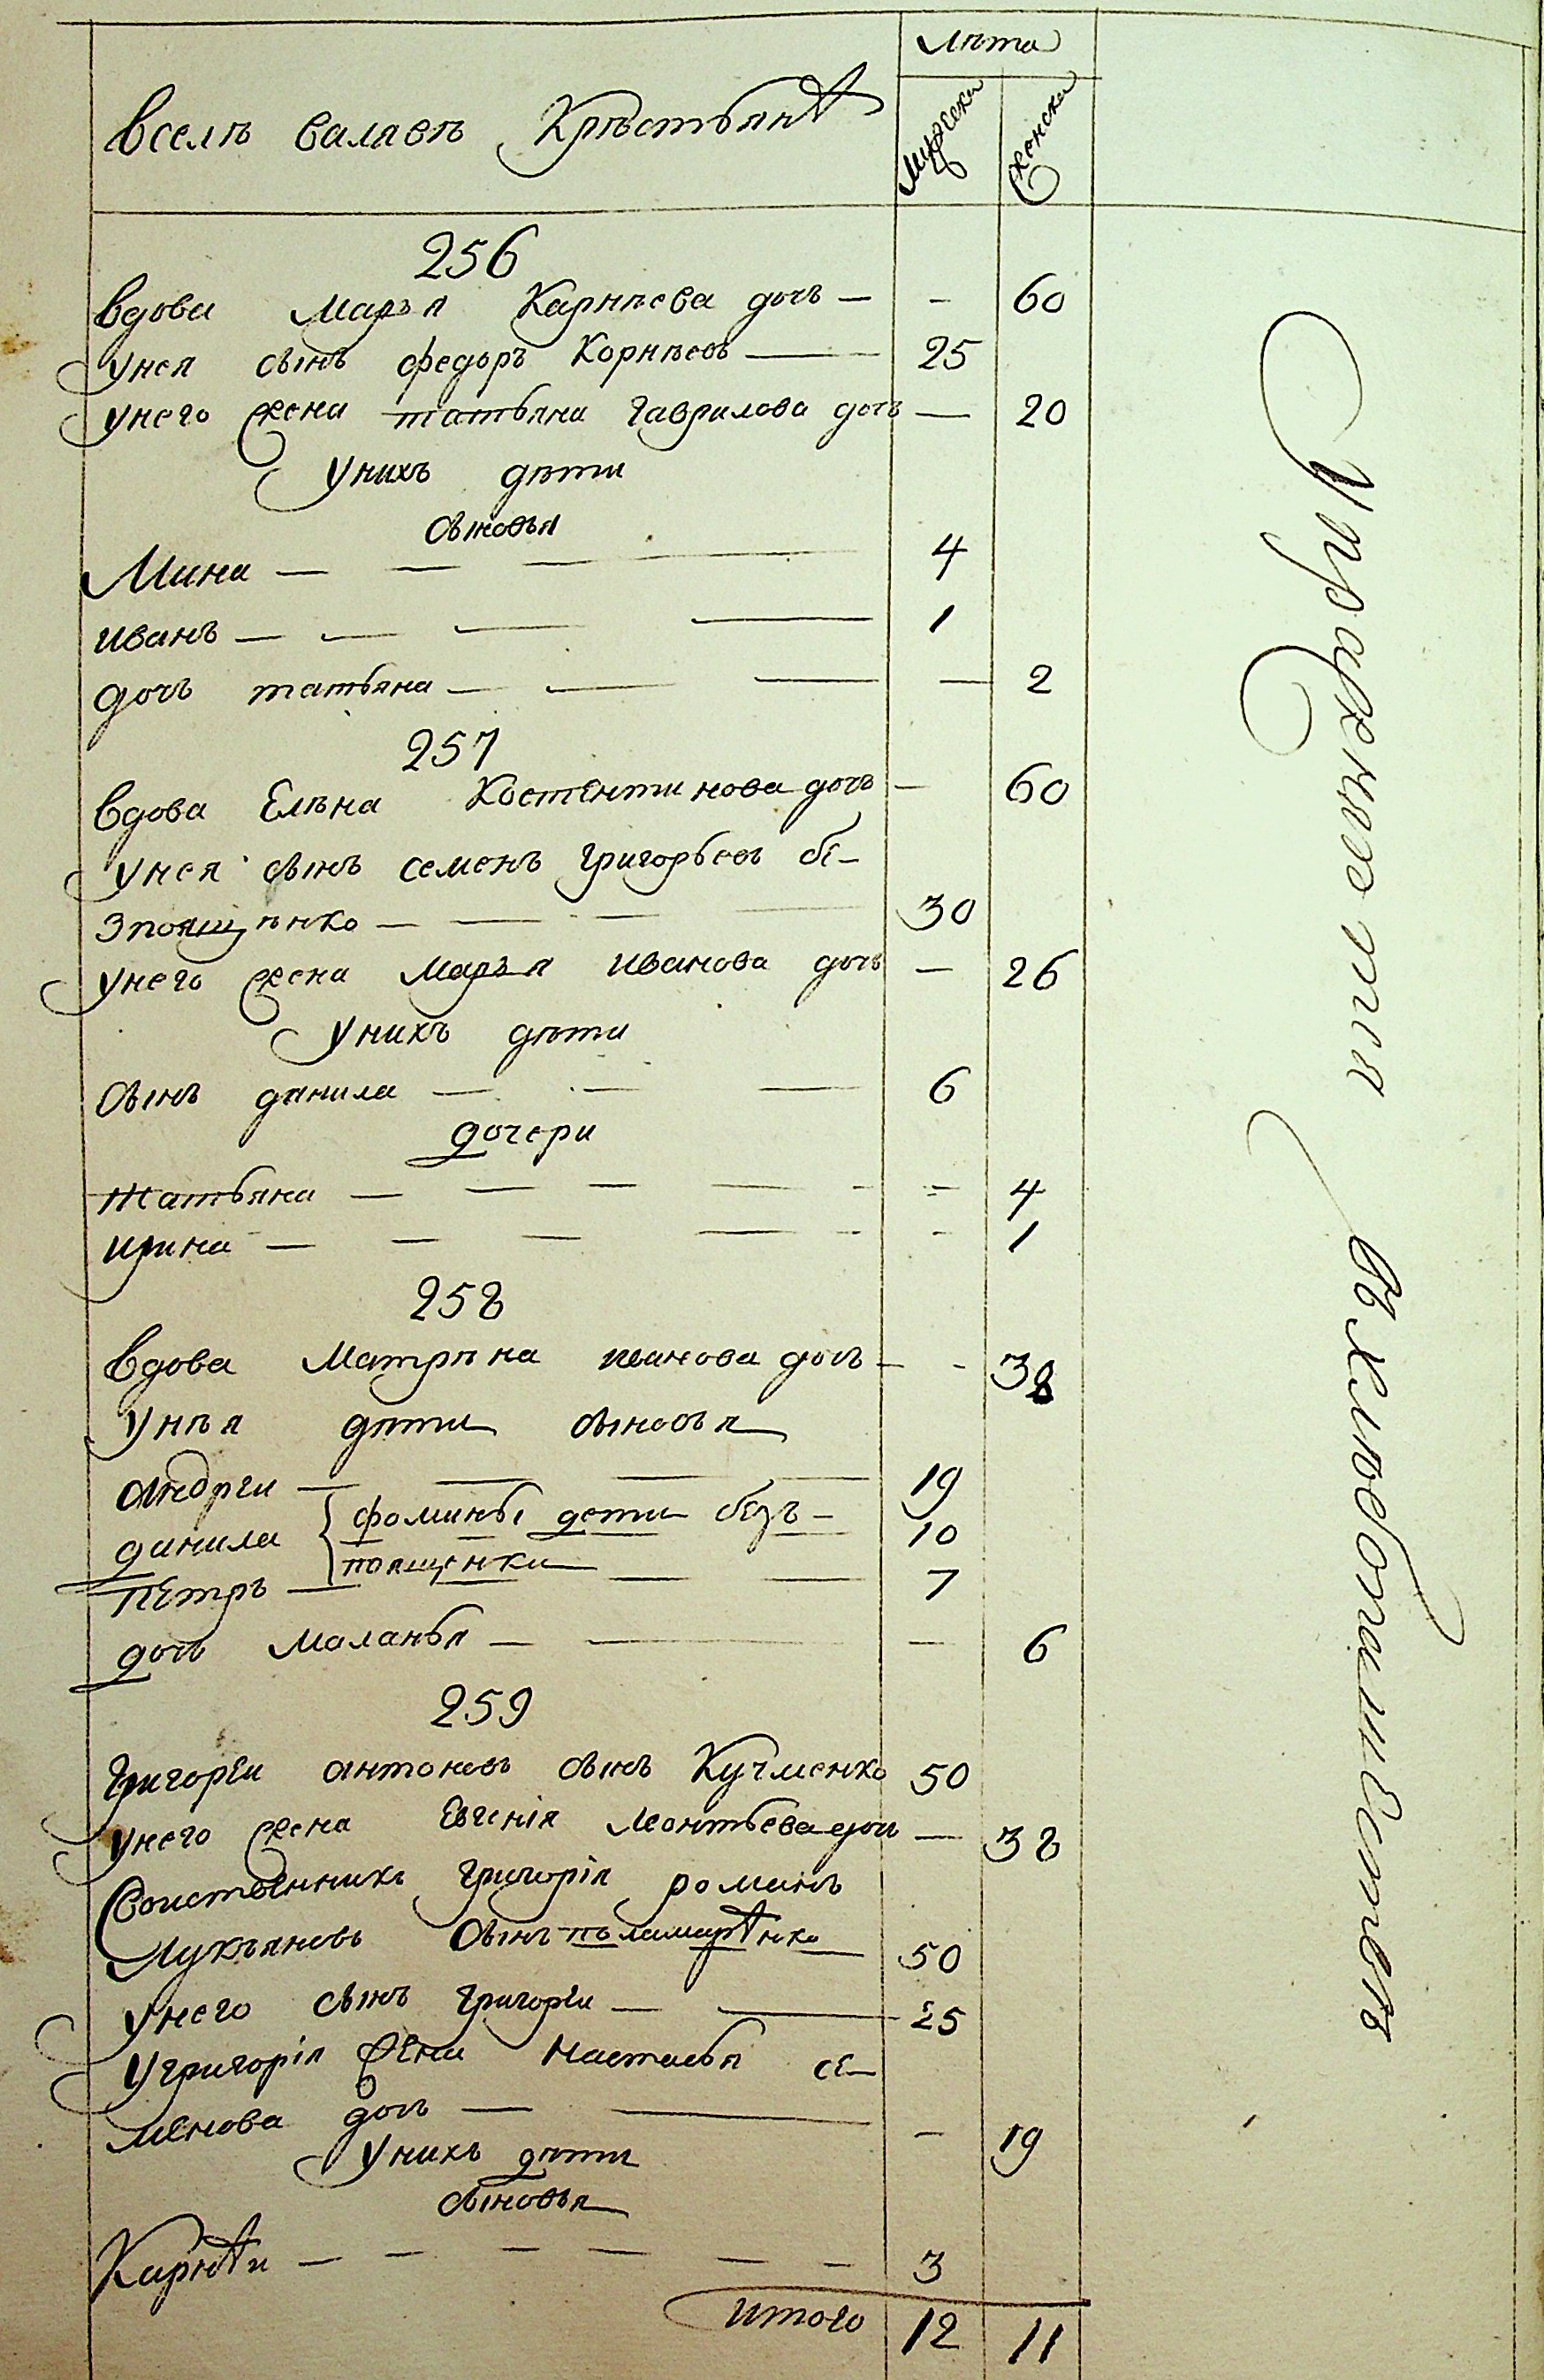 Лѣта
Вселѣ валявѣ Крѣстьянъ
Мужеска
Женска
256
вдова Марья Карнѣева дочъ — — 60
унея сынъ федоръ Корнѣевъ — 25
унего жена татьяна гаврилова дочъ — 20
унихъ дѣти
сыновья
Мина — — — 4
иванъ — — — 1
дочъ татьяна — — — — 2
257
вдова Елѣна Костентинова дочъ — 60
унея сынъ семенъ григорьевъ бе-
зпоящѣнко — — — 30
унего жена Марья иванова дочъ — 26
унихъ дѣти
сынъ данила — — — 6
дочери
татьяна — — — — - - 4
ирина — — — — - - 1
258
вдова Матрѣна иванова дочъ — - 38
унѣя дѣти сыновья
андреи — — — — 19
данила { фомины дети безъ- 10
поященки
пЕтръ — — — 7
дочъ маланья — — — 6
259
григореи антоновъ сынъ Кучменко 50
унего жена Евгенія леонтьева дочъ — 38
Своиственникъ григорія романъ
Лукъяновъ сынъ паламарѣнко 50
унего сынъ григореи — — 25
угригорія жена настасья се-
менова дочъ — — — 19
унихъ дѣти
сыновья
Карнѣи — — — — — — 3
итого 12 11